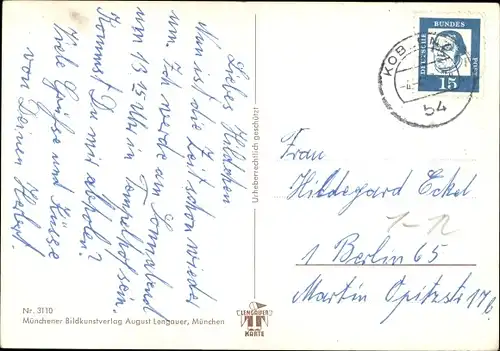 Liebes Hildchen
Nun ist die Zeit schon wieder
um. Ich werde am Sonnabend
um 13 15 Uhr in Tempelhof sein.
Kommst Du mir abholen?
Viele Grüße und Küsse
von Deinen Herbert.
Nr. 3110
Münchener Bildkunstverlag August Lengauer, München
Urheberrechtlich geschützt!
LENGAUER
KARTE
KOB
54
DEUTSCHE
BUNDES
POST
15
Frau
Hildegard Eckel
1-12
1 Berlin 65
Martin Opitzstr 17b